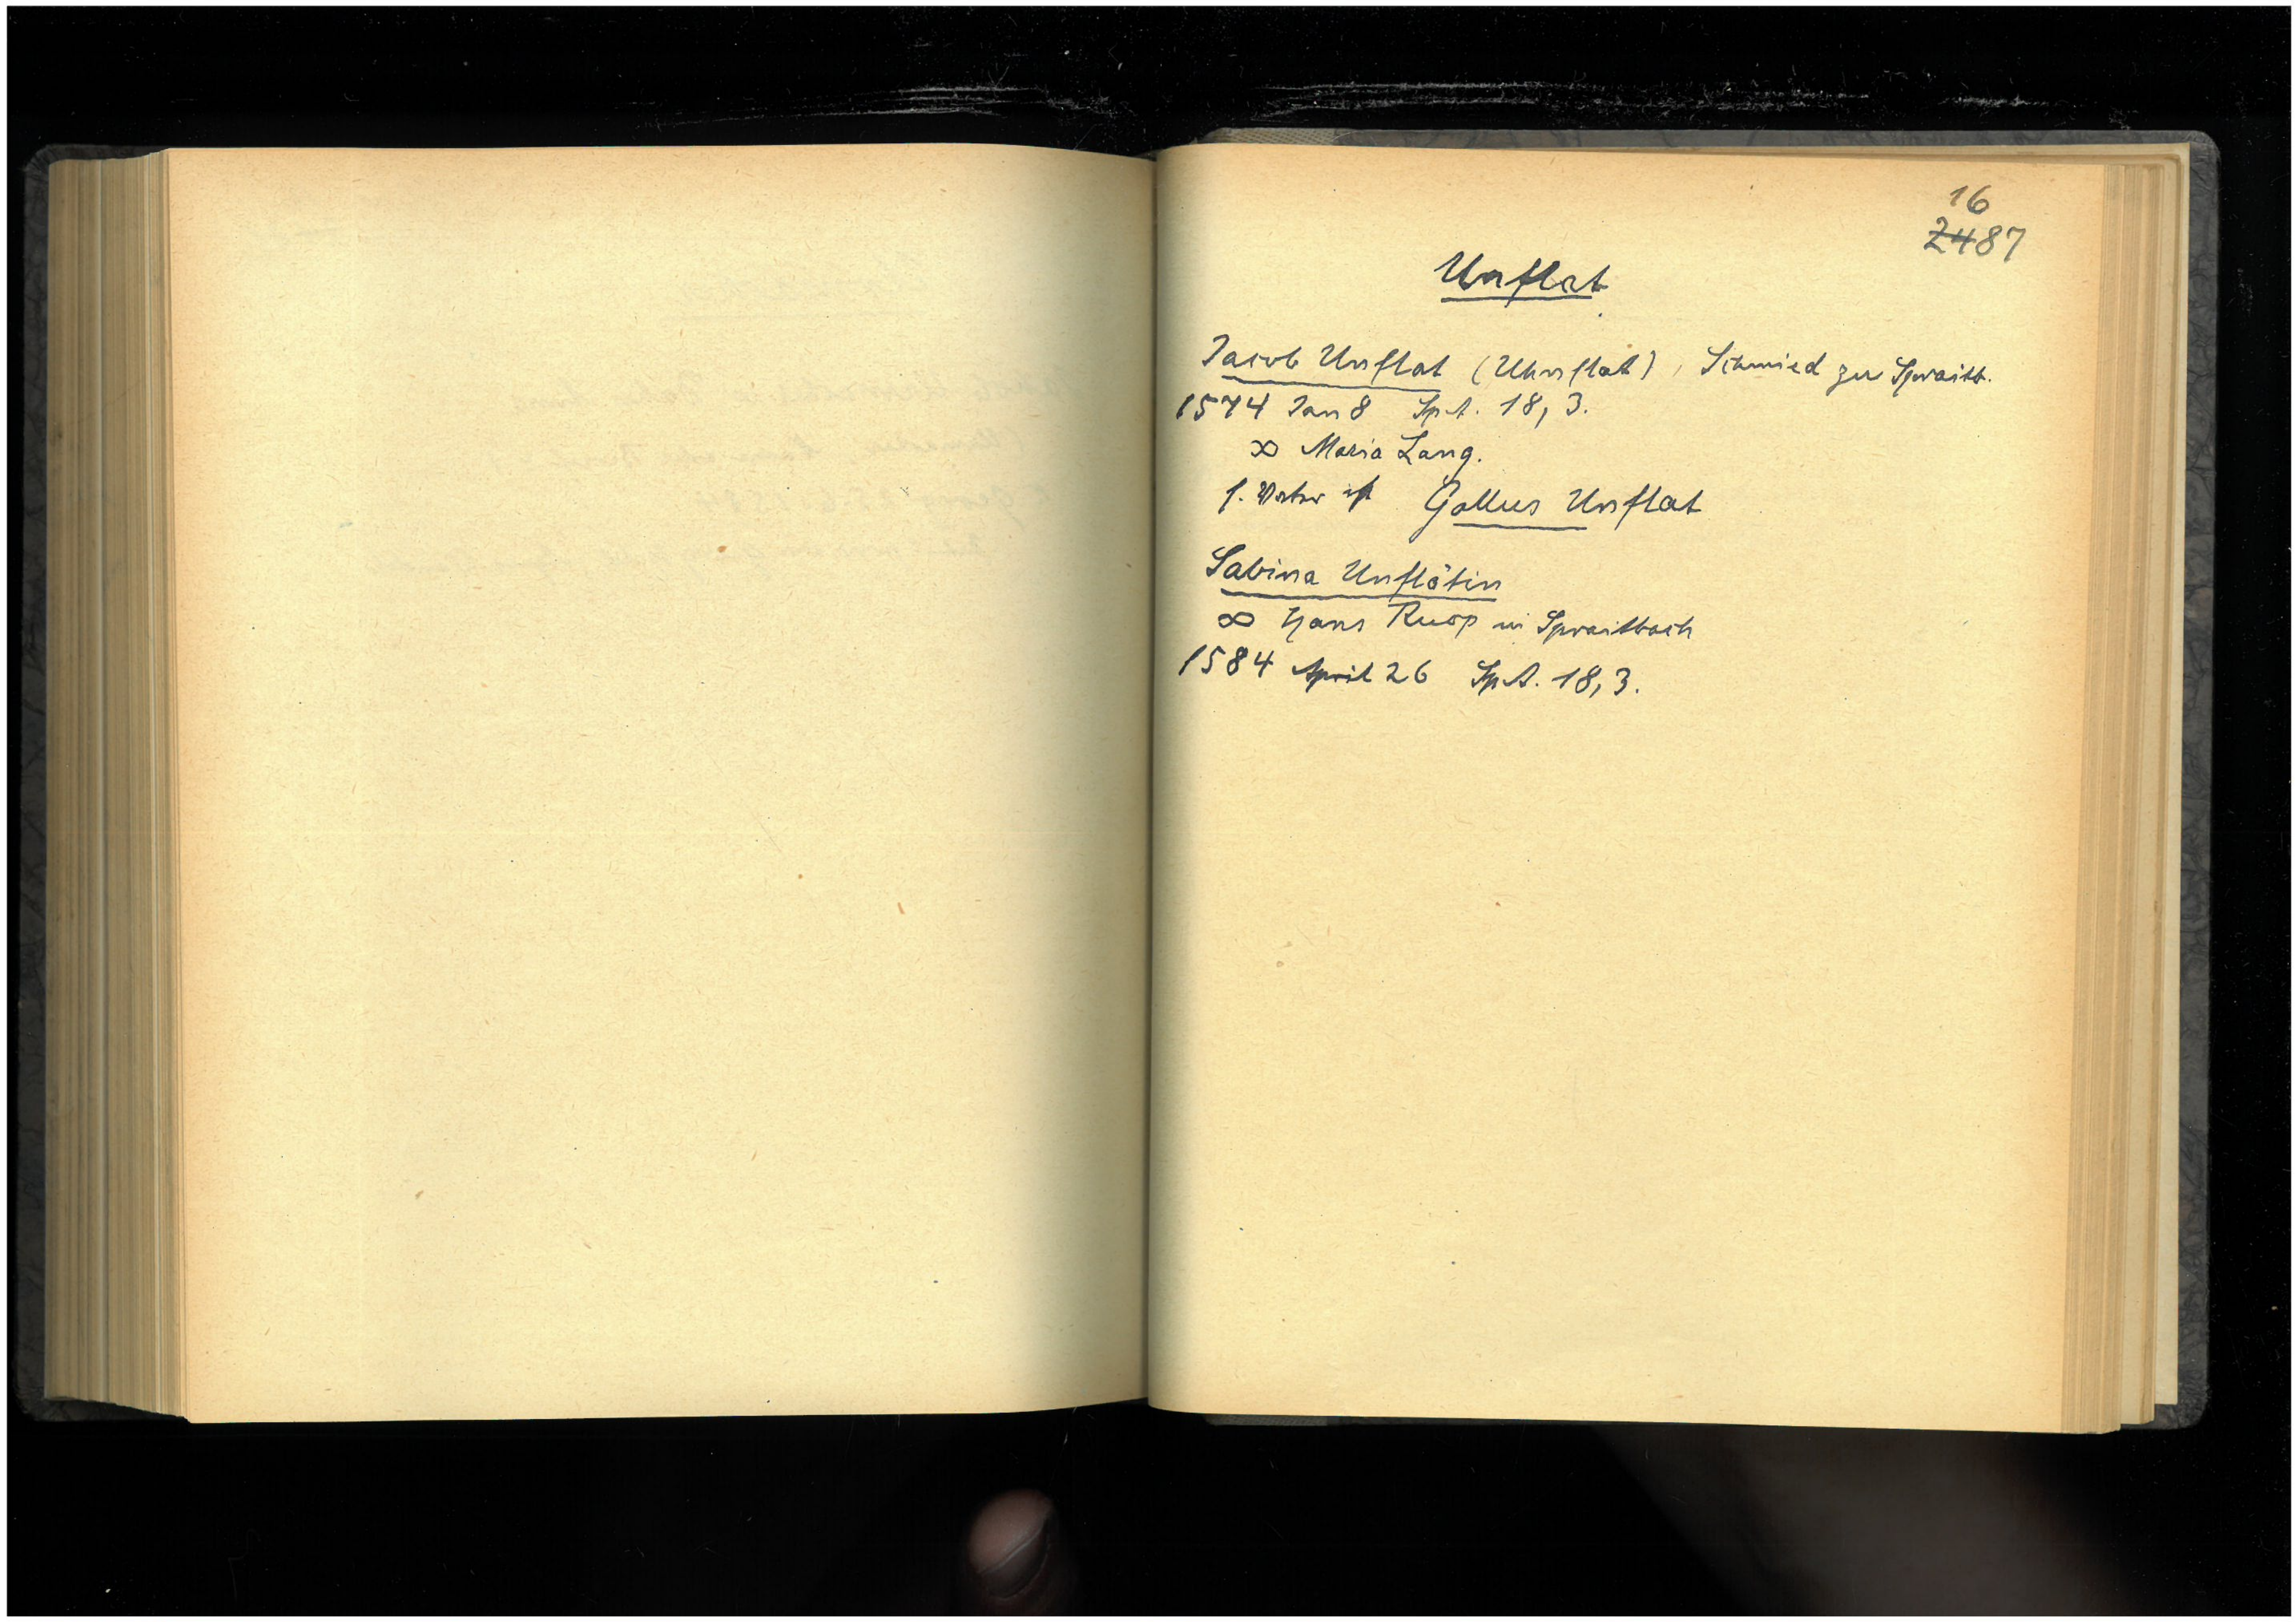 16
2487
Unflat
Jacob Unflat (Uhnflat), Schmied zu Spraitb.
1574 Jan 8 Sp.A. 18, 3.
∞ Maria Lang.
s. Vater ist Gallus Unflat
Sabina Unflätin
∞ Hans Ruop in Spraitbach
1584 April 26 Sp.A. 18, 3.